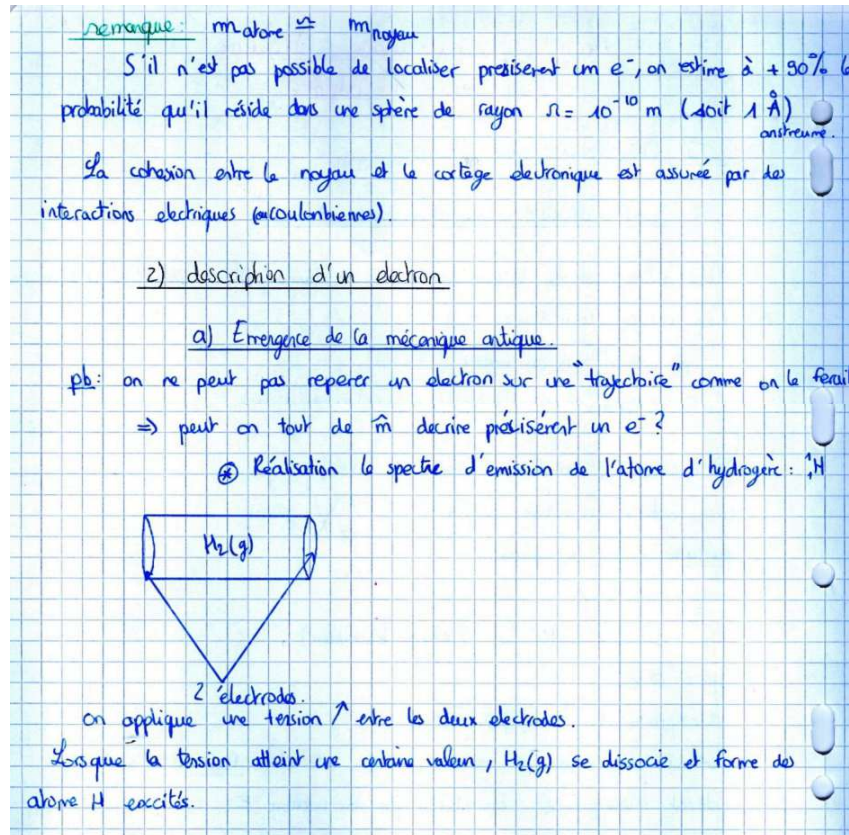 remarque: m atome ≃ m noyau
S'il n'est pas possible de localiser presisement un e⁻, on estime à + 90% l
probabilité qu'il réside dans une sphère de rayon r = 10⁻¹⁰ m (soit 1 Å)
anstreume.
La cohesion entre le noyau et le cortege electronique est assurée par des
interactions electriques (ou coulonbiennes).
2) description d'un electron
a) Emergence de la mécanique antique.
pb: on ne peut pas reperer un electron sur une "trajectoire" comme on le ferait
⇒ peut on tout de m̂ decrire précisément un e⁻ ?
⊛ Réalisation le spectre d'emission de l'atome d'hydrogène : ¹₁H
H₂(g)
2 électrodes.
on applique une tension ↗ entre les deux electrodes.
Lorsque la tension atteint une certaine valeur, H₂(g) se dissocie et forme des
atome H exccités.